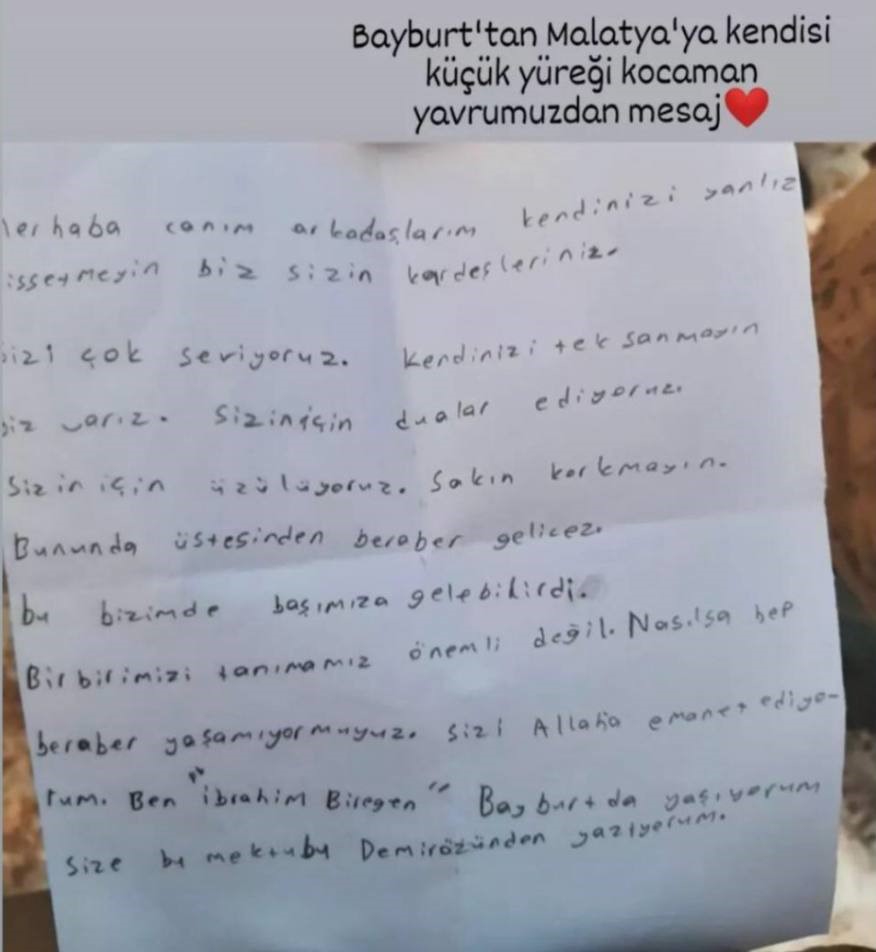 Bayburt'tan Malatya'ya kendisi
küçük yüreği kocaman
yavrumuzdan mesaj❤️
erhaba canım arkadaşlarım kendinizi yanlız
issetmeyin biz sizin kardeşleriniz.
sizi çok seviyoruz. kendinizi tek sanmayın
biz varız. Siziniçin dualar ediyoruz.
Sizin için üzülüyoruz. Sakın korkmayın.
Bununda üstesinden beraber gelicez.
bu bizimde başımıza gelebilirdi.
Birbirimizi tanımamız önemli değil. Nasılsa hep
beraber yaşamıyormuyuz. sizi Allaha emanet ediyo-
rum. Ben "ibrahim Biregen" Bayburtda yaşıyorum
size bu mektubu Demirözünden yazıyorum.